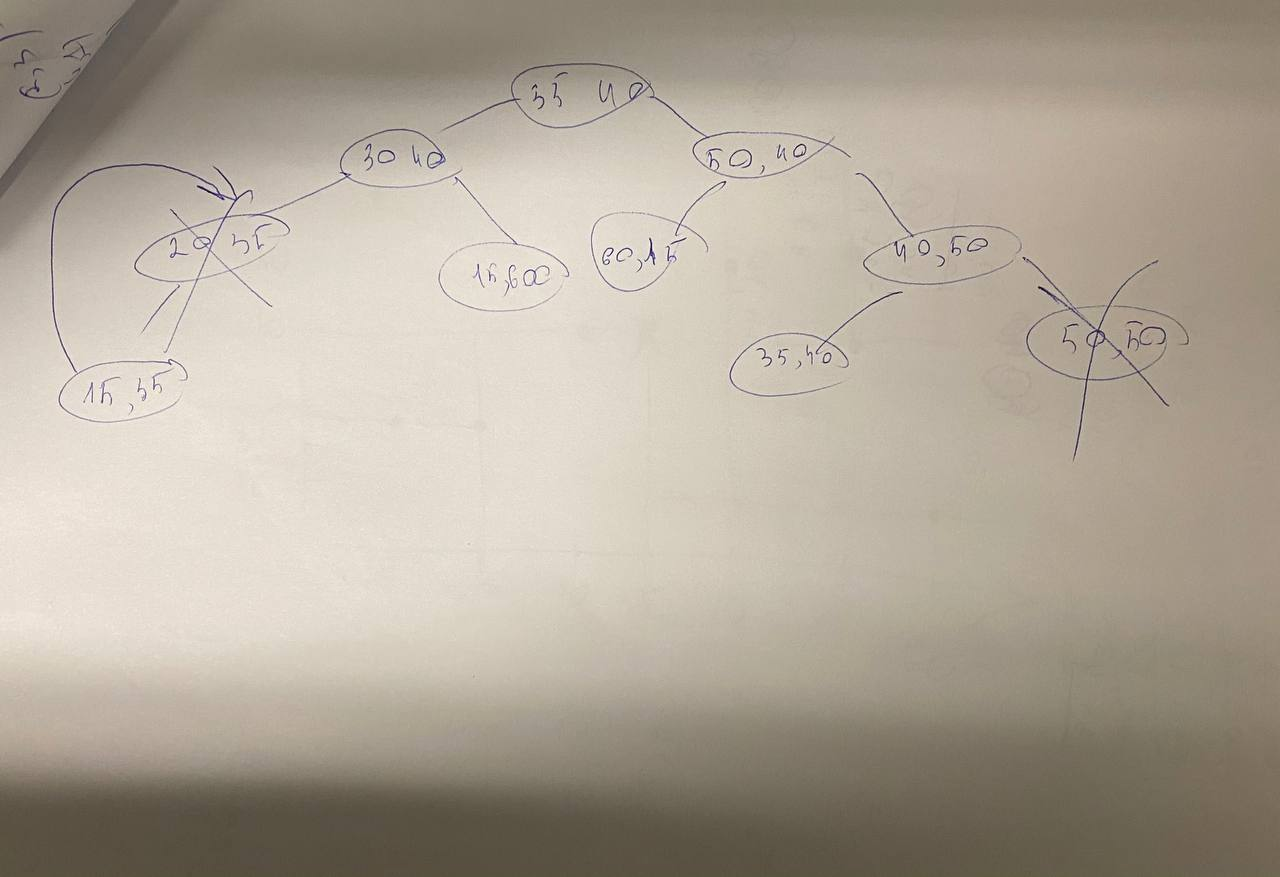 35 40
30 40
50, 40
20, 35
15, 600
60, 15
40, 50
15, 35
35, 40
50, 50